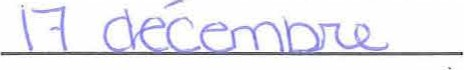 17 décembre